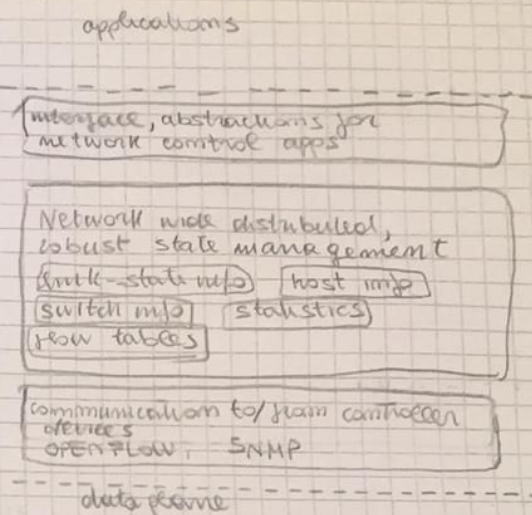 applications
interface, abstractions for
network control apps
Network wide distributed,
robust state management
link-state info host info
switch info statistics
flow tables
communication to/from controller
devices
OPENFLOW, SNMP
data plane